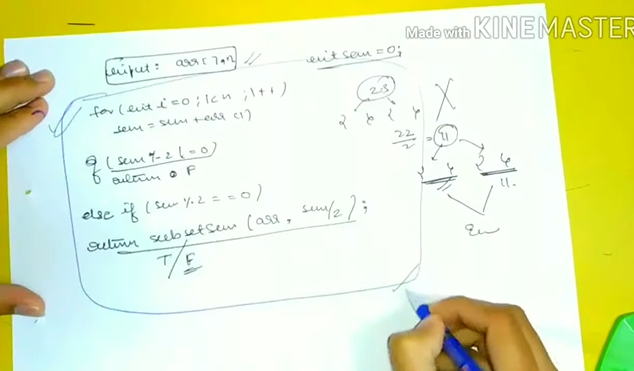 Made with KINEMASTER
input: arr[] n
int sum = 0;
for (int i=0; i<n; i++)
sum = sum + arr(i)
if (sum % 2 != 0)
return F
else if (sum % 2 == 0)
return subsetsum (arr, sum/2);
T/F
23
{ } { }
22/2 = 11
{ } { }
11.